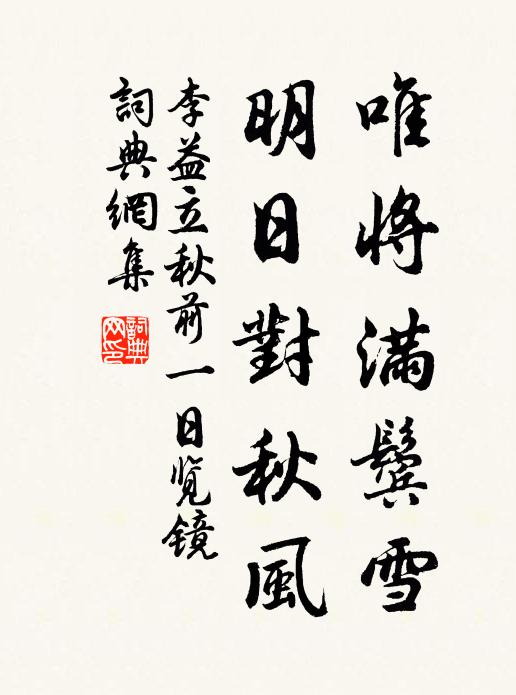 唯將滿鬢雪
明日對秋風
李益立秋前一日览镜
詞典網集
詞典网印